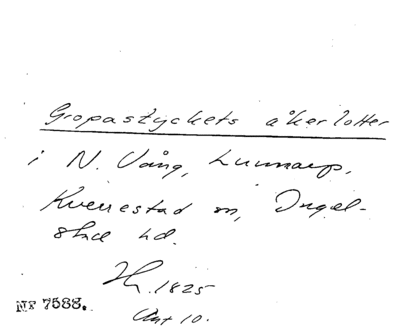 Gropastyckets åkerlotter
i N. Vång, Lunnarp,
Kverrestad sn, Ingel-
stad hd.
1825
Nr 7588.
Ant 10.